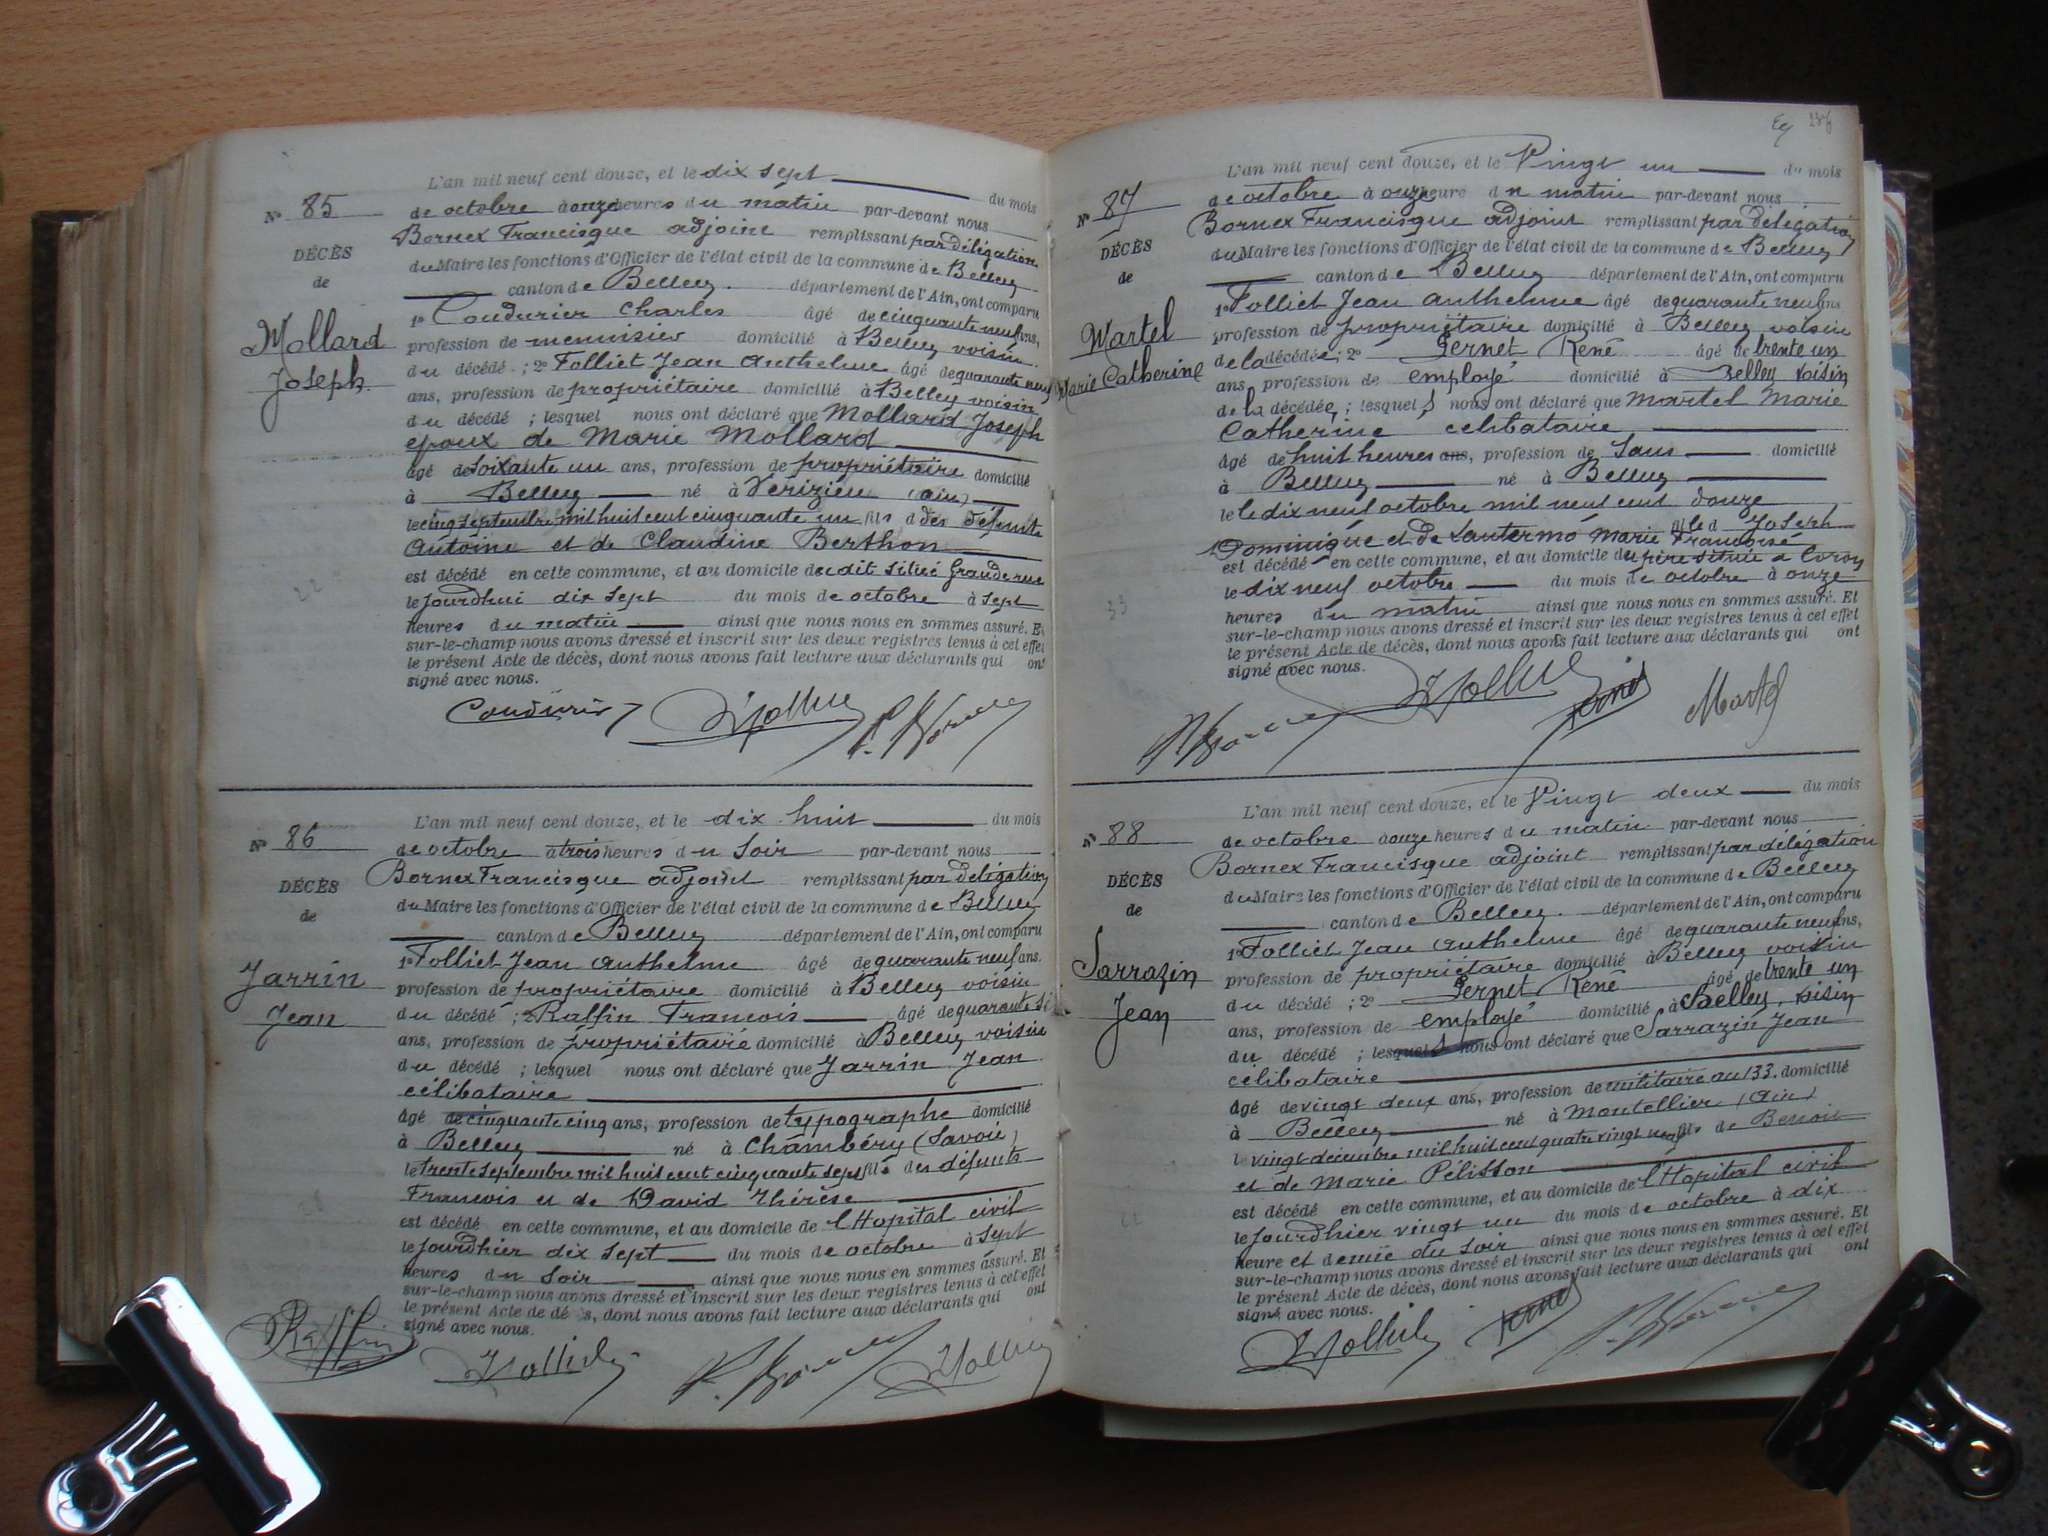 L'an mil neuf cent douze, et le dix sept du mois
N° 85
de octobre à onze heures du matin par-devant nous
Bornex Francisque adjoint remplissant par délégation
DÉCÈS
du Maire les fonctions d'Officier de l'état civil de la commune de Belley
de
canton de Belley. département de l'Ain, ont comparu
1° Coudurier Charles âgé de cinquante neuf ans,
Mollard
profession de menuisier domicilié à Belley voisin
du décédé ; 2° Folliet Jean Anthelme âgé de quarante neuf
Joseph.
ans, profession de propriétaire domicilié à Belley voisin
du décédé ; lesquel nous ont déclaré que Mollard Joseph
époux de Marie Mollard
âgé de soixante un ans, profession de propriétaire domicilié
à Belley né à Vérizieu (ain)
le cinq septembre mil huit cent cinquante un fils d des défunts
Antoine et de Claudine Berthon
est décédé en cette commune, et au domicile de dit situé Grande rue
le jourdhui dix sept du mois de octobre à sept
heures du matin ainsi que nous nous en sommes assuré. Et
sur-le-champ nous avons dressé et inscrit sur les deux registres tenus à cet effet
le présent Acte de décès, dont nous avons fait lecture aux déclarants qui ont
signé avec nous.
Coudurier Folliet F. Bornex
L'an mil neuf cent douze, et le dix huit du mois
N° 86
de octobre à trois heures du soir par-devant nous
Bornex Francisque adjoint remplissant par délégation
DÉCÈS
du Maire les fonctions d'Officier de l'état civil de la commune de Belley
de
canton de Belley département de l'Ain, ont comparu
1° Folliet Jean Anthelme âgé de quarante neuf ans.
Jarrin
profession de propriétaire domicilié à Belley voisin
Jean
du décédé ; 2° Raffin Francois âgé de quarante si
ans, profession de propriétaire domicilié à Belley voisin
du décédé ; lesquel nous ont déclaré que Jarrin Jean
célibataire
âgé de cinquante cinq ans, profession de typographe domicilié
à Belley né à Chambéry (Savoie)
le trente septembre mil huit cent cinquante sept fils des défunts
Francois et de David Thérèse
est décédé en cette commune, et au domicile de l'Hopital civil
le jourdhier dix sept du mois de octobre à sept
heures du soir ainsi que nous nous en sommes assuré. Et
sur-le-champ nous avons dressé et inscrit sur les deux registres tenus à cet effet
le présent Acte de dé s, dont nous avons fait lecture aux déclarants qui ont
signé avec nous.
Raffin Folliet F. Bornex Folliet
L'an mil neuf cent douze, et le Vingt un du mois
N° 87
de octobre à onze heure du matin par-devant nous
Bornex Francisque adjoint remplissant par délégation
DÉCÈS
du Maire les fonctions d'Officier de l'état civil de la commune de Belley
de
canton de Belley département de l'Ain, ont comparu
1° Folliet Jean Anthelme âgé de quarante neuf ans
Martel
profession de propriétaire domicilié à Belley voisin
de la décédée ; 2° Pernet René âgé de trente un
Marie Catherine
ans, profession de employé domicilié à Belley voisin
de la décédée ; lesquels nous ont déclaré que Martel Marie
Catherine célibataire
âgé de huit heures ans, profession de Sans domicilié
à Belley né à Belley
le le dix neuf octobre mil neuf cent douze
fille d Joseph
Dominique et de Santermo Marie Francoise
est décédé en cette commune, et au domicile du père située à Coron
le dix neuf octobre du mois de octobre à onze
heures du matin ainsi que nous nous en sommes assuré. Et
sur-le-champ nous avons dressé et inscrit sur les deux registres tenus à cet effet
le présent Acte de décès, dont nous avons fait lecture aux déclarants qui ont
signé avec nous.
F. Bornex Folliet Pernet Martel
L'an mil neuf cent douze, et le Vingt deux du mois
N° 88
de octobre à onze heures du matin par-devant nous
Bornex Francisque adjoint remplissant par délégation
DÉCÈS
du Maire les fonctions d'Officier de l'état civil de la commune de Belley
de
canton de Belley. département de l'Ain, ont comparu
1° Folliet Jean Anthelme âgé de quarante neuf ans,
Sarrazin
profession de propriétaire domicilié à Belley voisin
Jean
du décédé ; 2° Pernet René âgé de trente un
ans, profession de employé domicilié à Belley, voisin
du décédé ; lesquels nous ont déclaré que Sarrazin Jean
célibataire
âgé de vingt deux ans, profession de militaire au 133. domicilié
à Belley né à Montellier (Ain)
le vingt décembre mil huit cent quatre vingt neuf fils de Benoit
et de Marie Pélisson
est décédé en cette commune, et au domicile de l'Hopital civil
le jourdhier vingt un du mois de octobre à dix
heure et demie du soir ainsi que nous nous en sommes assuré. Et
sur-le-champ nous avons dressé et inscrit sur les deux registres tenus à cet effet
le présent Acte de décès, dont nous avons fait lecture aux déclarants qui ont
signé avec nous.
Folliet Pernet F. Bornex